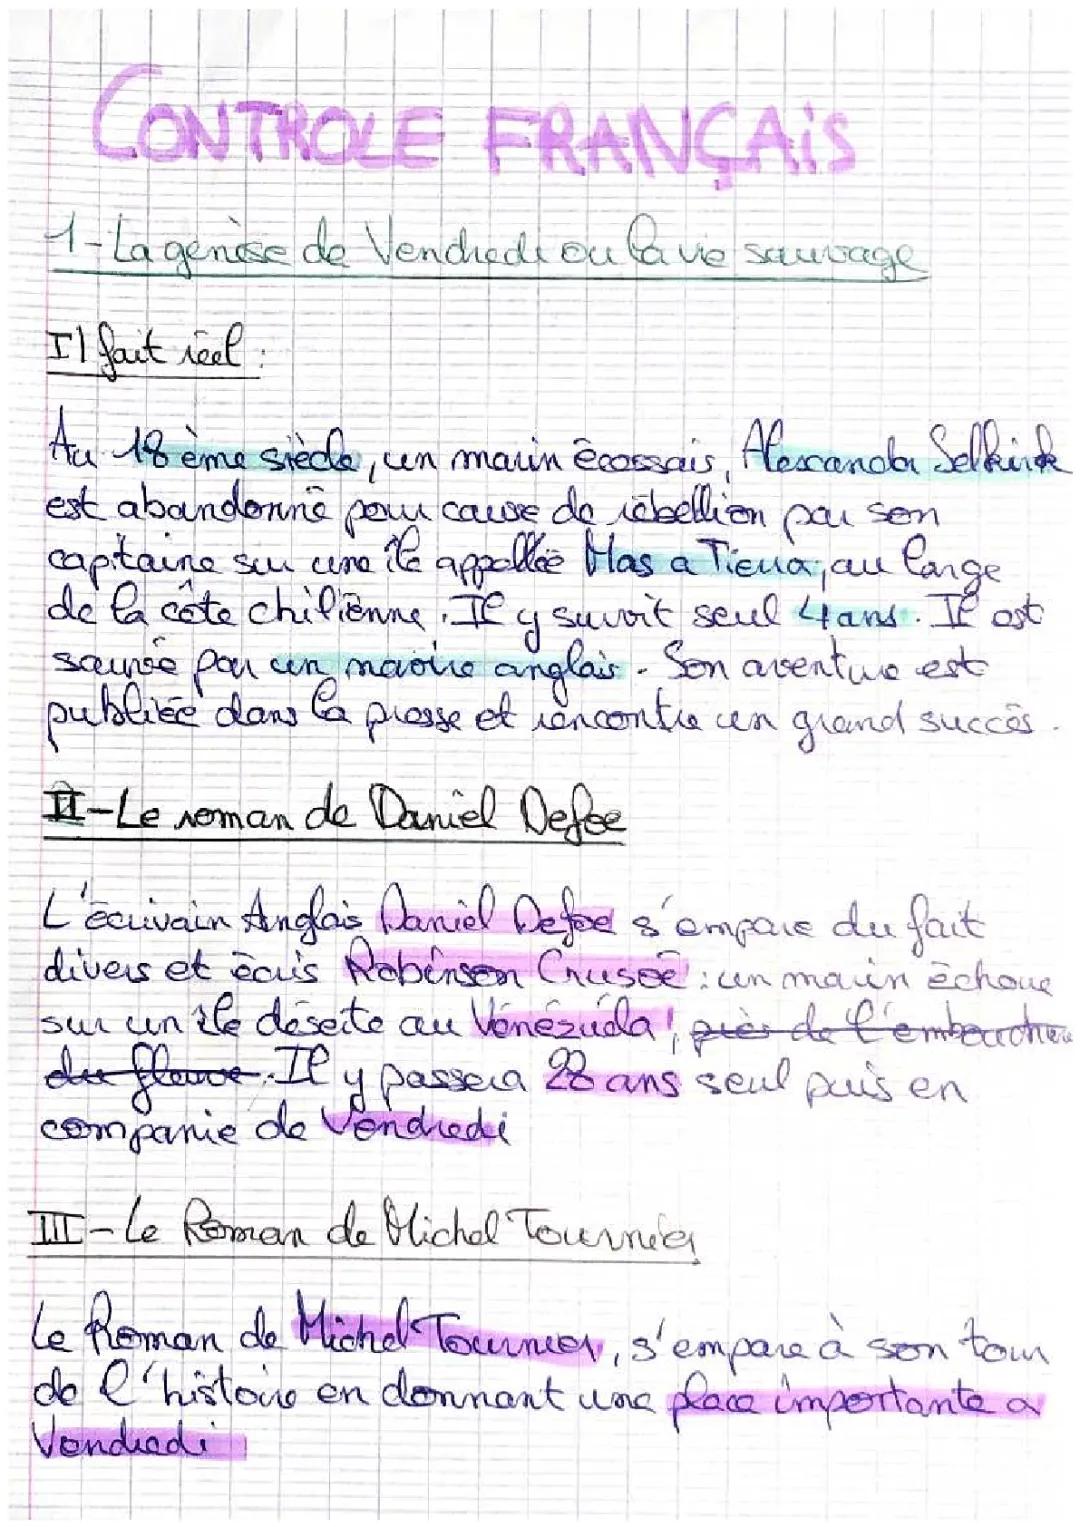 CONTROLE FRANÇAiS
1-La genèse de Vendredi ou la vie sauvage
I1 fait réel :
Au 18 ème siècle, un marin écossais, Alexander Selkirk
est abandonné pour cause de rébellion par son
capitaine sur une île appellée Mas a Tierra, au large
de la côte chilienne. Il y survit seul 4 ans. Il est
sauvé par un navire anglais. Son aventure est
publiée dans la presse et rencontre un grand succès.
II-Le roman de Daniel Defoe
L'écrivain Anglais Daniel Defoe s'empare du fait
divers et écris Robinson Crusoé : un marin échoue
sur un île déserte au Vénézuela, près de l'embouchure
du fleuve. Il y passera 28 ans seul puis en
companie de Vendredi
III-Le Roman de Michel Tournier
Le Roman de Michel Tournier, s'empare à son tour
de l'histoire en donnant une place importante a
Vendredi